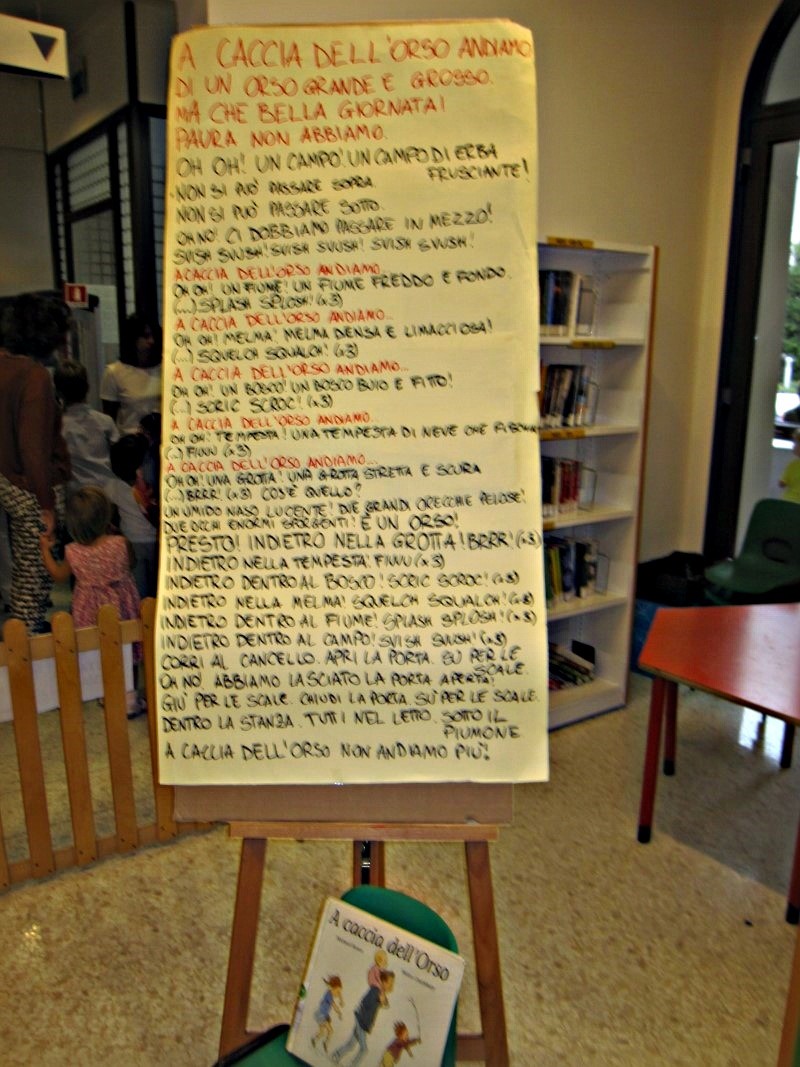 A CACCIA DELL'ORSO ANDIAMO
DI UN ORSO GRANDE E GROSSO.
MA CHE BELLA GIORNATA!
PAURA NON ABBIAMO.
OH OH! UN CAMPO! UN CAMPO DI ERBA
FRUSCIANTE!
NON SI PUÒ PASSARE SOPRA.
NON SI PUÒ PASSARE SOTTO.
OH NO! CI DOBBIAMO PASSARE IN MEZZO!
SVISH SVUSH! SVISH SVUSH! SVISH SVUSH!
A CACCIA DELL'ORSO ANDIAMO...
OH OH! UN FIUME! UN FIUME FREDDO E FONDO.
(...) SPLASH SPLOSH! (x3)
A CACCIA DELL'ORSO ANDIAMO...
OH OH! MELMA! MELMA DENSA E LIMACCIOSA!
(...) SQUELCH SQUALCH! (x3)
A CACCIA DELL'ORSO ANDIAMO...
OH OH! UN BOSCO! UN BOSCO BUIO E FITTO!
(...) SCRIC SCROC! (x3)
A CACCIA DELL'ORSO ANDIAMO...
OH OH! TEMPESTA! UNA TEMPESTA DI NEVE CHE
(...) FIUU (x3)
A CACCIA DELL'ORSO ANDIAMO...
OH OH! UNA GROTTA! UNA GROTTA STRETTA E SCURA
(...) BRRR! (x3) COS'È QUELLO?
UN UMIDO NASO LUCENTE! DUE GRANDI ORECCHIE PELOSE!
DUE OCCHI ENORMI SPORGENTI! È UN ORSO!
PRESTO! INDIETRO NELLA GROTTA! BRRR! (x3)
INDIETRO NELLA TEMPESTA! FIUU (x3)
INDIETRO DENTRO AL BOSCO! SCRIC SCROC! (x3)
INDIETRO NELLA MELMA! SQUELCH SQUALCH! (x3)
INDIETRO DENTRO AL FIUME! SPLASH SPLOSH! (x3)
INDIETRO DENTRO AL CAMPO! SVISH SVUSH! (x3)
CORRI AL CANCELLO. APRI LA PORTA. SU PER LE
SCALE.
OH NO! ABBIAMO LASCIATO LA PORTA APERTA!
GIÙ PER LE SCALE. CHIUDI LA PORTA. SU PER LE SCALE.
DENTRO LA STANZA. TUTTI NEL LETTO. SOTTO IL
PIUMONE
A CACCIA DELL'ORSO NON ANDIAMO PIÙ!
A caccia dell'Orso